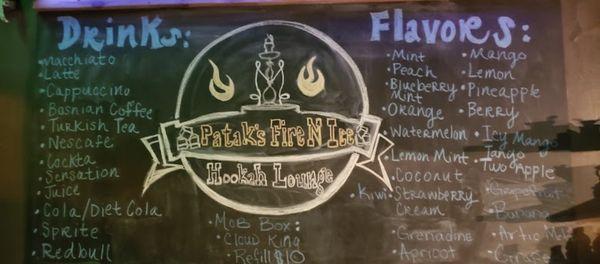 Drinks:
macchiato
Latte
Cappuccino
Bosnian Coffee
Turkish Tea
Nescafe
Cockta
Sensation
Juice
Cola/Diet Cola
Sprite
Redbull
Patak's Fire N Ice
Hookah Lounge
Mob Box:
Cloud King
Refill $10
Flavors:
Mint
Peach
Blueberry
Mint
Orange
Watermelon
Lemon Mint
Coconut
Kiwi Strawberry
Cream
Grenadine
Apricot
Mango
Lemon
Pineapple
Berry
Icy Mango
Tango
Two Apple
Grapefruit
Banana
Artic